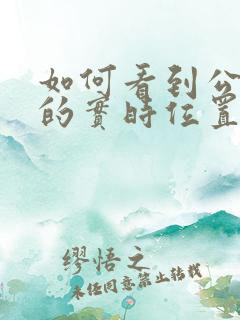 如何看到公
的實時位置
繆悟之
未經同意禁止轉載